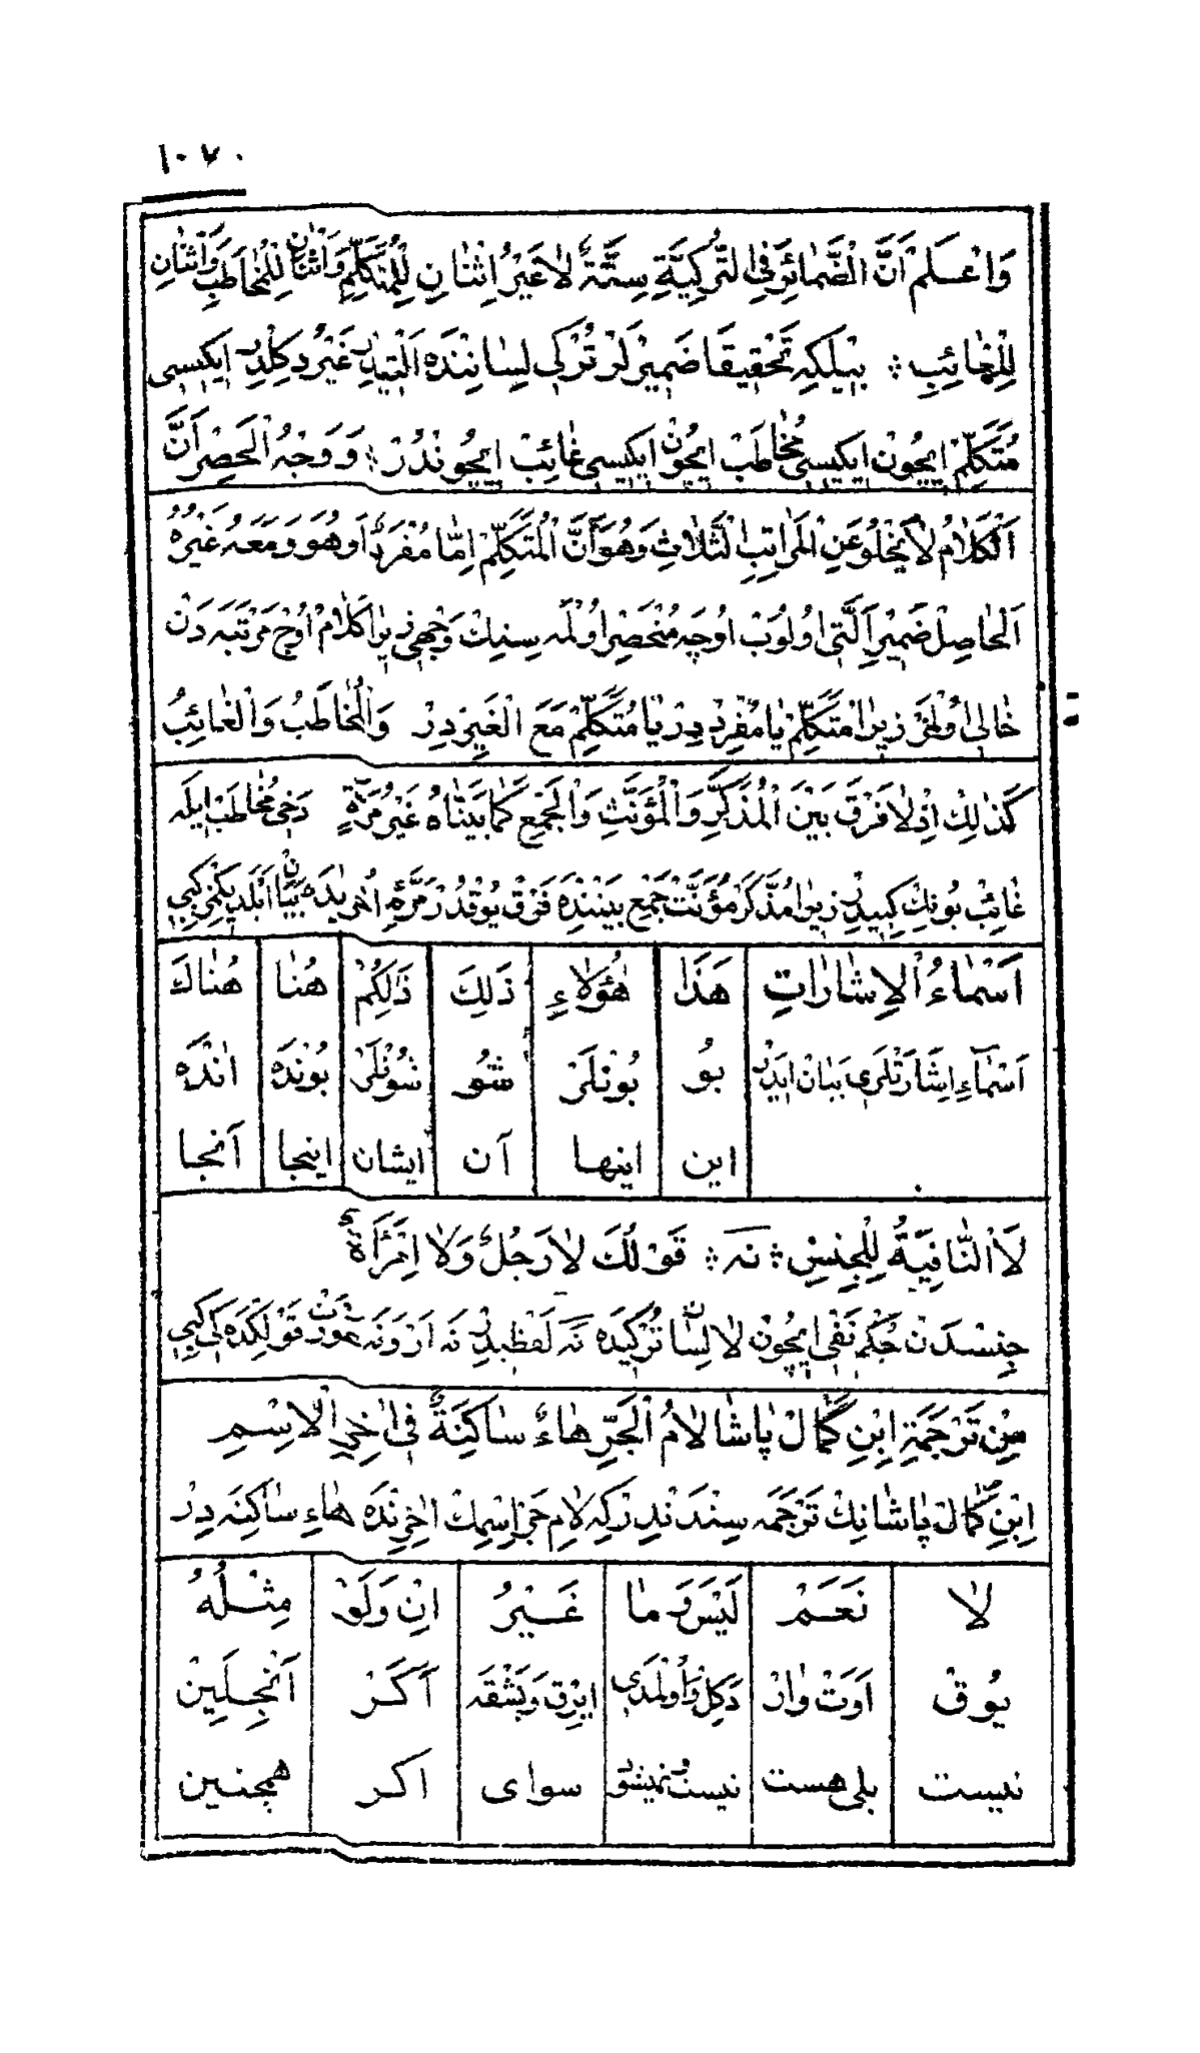 ١٠٧٠
وَاعْلَمْ اَنَّ الضَّمَائِرَ فِي التُّرْكِيَّةِ سِتَّةٌ لَا غَيْرُ اِثْنَانِ لِلْمُتَكَلِّمِ وَاثْنَانِ لِلْمُخَاطَبِ وَاثْنَانِ
لِلْغَائِبِ ؞ بيلكه تَحْقِيقًا ضَمِيرْلَرْ تُرْكِي لِسَانِنْدَه اَلْتِيدِرْ غَيْرُ دَكِلْدِرْ ايكيسى
مُتَكَلِّمْ ايچُونْ ايكيسى مُخَاطَبْ ايچُونْ ايكيسى غَائِبْ ايچُونْدُرْ ؞ وَوَجْهُ الْحَصْرِ اَنَّ
اَلْكَلَامُ لَا يَخْلُو عَنِ الْمَرَاتِبِ الثَّلَاثِ وَهُوَ اَنَّ الْمُتَكَلِّمَ اِمَّا مُفْرَدٌ اَوْ هُوَ وَمَعَهُ غَيْرُهُ
اَلْحَاصِلْ ضَمِيرْ اَلْتِى اولُوبْ اوچَه مُنْحَصِرْ اولْمَه سِنِكْ وَجْهِى زِيرَا كَلَامْ اوچْ مَرْتَبَه دَنْ
خَالِى اولْمَزْ زِيرَا مُتَكَلِّمْ يَا مُفْرَدْ دِرْ يَا مُتَكَلِّمْ مَعَ الْغَيْرِ دِرْ وَالْمُخَاطَبُ وَالْغَائِبُ
كَذٰلِكَ اِذْ لَا فَرْقَ بَيْنَ الْمُذَكَّرِ وَالْمُؤَنَّثِ وَالْجَمْعِ كَمَا بَيَّنَّاهُ غَيْرَ مَرَّةٍ دَخِى مُخَاطَبْ ايلَه
غَائِبْ بُونِكْ كِبِيدِرْ زِيرَا مُذَكَّرْ مُؤَنَّثْ جَمْعْ بَيْنِنْدَه فَرْقْ يُوقْدُرْ مَرَّةِ اُخْرَيٰدَه بَيَانْ اَيْلَدِيكِمِزْ كِبِى
اَسْمَاءُ الْاِشَارَاتِ هَذَا هٰؤُلَاءِ ذَلِكَ ذَلِكُمْ هُنَا هُنَاكَ
اَسْمَآءِ اِشَارَتْلَرِى بَيَانْ ايدَرْ بُو بُونْلَرْ شُو شُونْلَرْ بُونْدَه انْدَه
اين اينها آن ايشان اينجا آنجا
لَا النَّافِيَةُ لِلْجِنْسِ ؞ نَه ؞ قَوْلُكَ لَا رَجُلٌ وَلَا اِمْرَأَةٌ
جِنِسْدَنْ حُكْمِ نَفْى ايچُونْ لَا لِسَانِ تُرْكِيدَه نَه لَفْظِيدِرْ نَه اَرْ وَنَه عَوْرَتْ قَوْلِكْدَه كِى كِبِى
مِنْ تَرْجَمَةِ ابْنِ كَمَالْ پَاشَا لَامُ الْجَرِّ هَاءٌ سَاكِنَةٌ فِى اٰخِرِ الْاِسْمِ
اِبْنِ كَمَالْ پَاشَانِكْ تَرْجَمَه سِنْدَنْدِرْكِه لَامِ جَرْ اِسْمِكْ اٰخِرِنْدَه هَاءِ سَاكِنَه دِرْ
لَا نَعَمْ لَيْسَ وَ مَا غَيْرُ اِنْ وَلَوْ مِثْلُهُ
يُوقْ اَوَتْ وَارْ دَكِلْ وَاُولْمَدِى ايرِقْ وَبَشْقَه اَكَرْ اَنْجِلَيِنْ
نيست بلى هست نيست نميشود سواى اكر همچنين